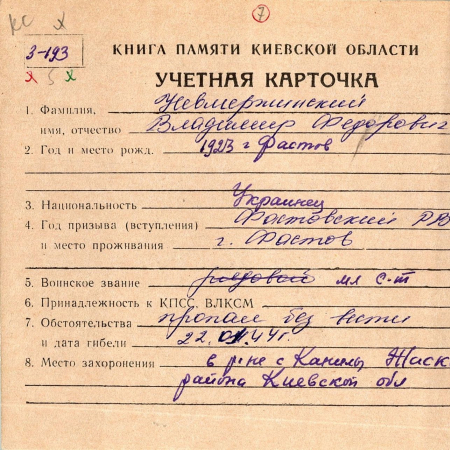 7
КС
3-193
КНИГА ПАМЯТИ КИЕВСКОЙ ОБЛАСТИ
УЧЕТНАЯ КАРТОЧКА
1. Фамилия, Невмержинский
имя, отчество Владимир Федорович
2. Год и место рожд. 1923 г Фастов
3. Национальность Украинец
4. Год призыва (вступления) Фастовский РВ
и место проживания г. Фастов
5. Воинское звание рядовой мл с-т
6. Принадлежность к КПСС, ВЛКСМ
7. Обстоятельства пропал без вести
и дата гибели 22. 44г.
8. Место захоронения в р-не с
района Киевской обл